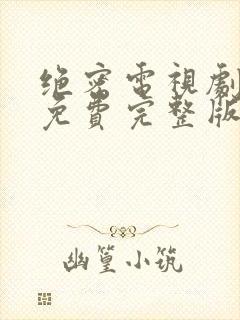 绝密電視劇
免費完整版
幽篁小筑